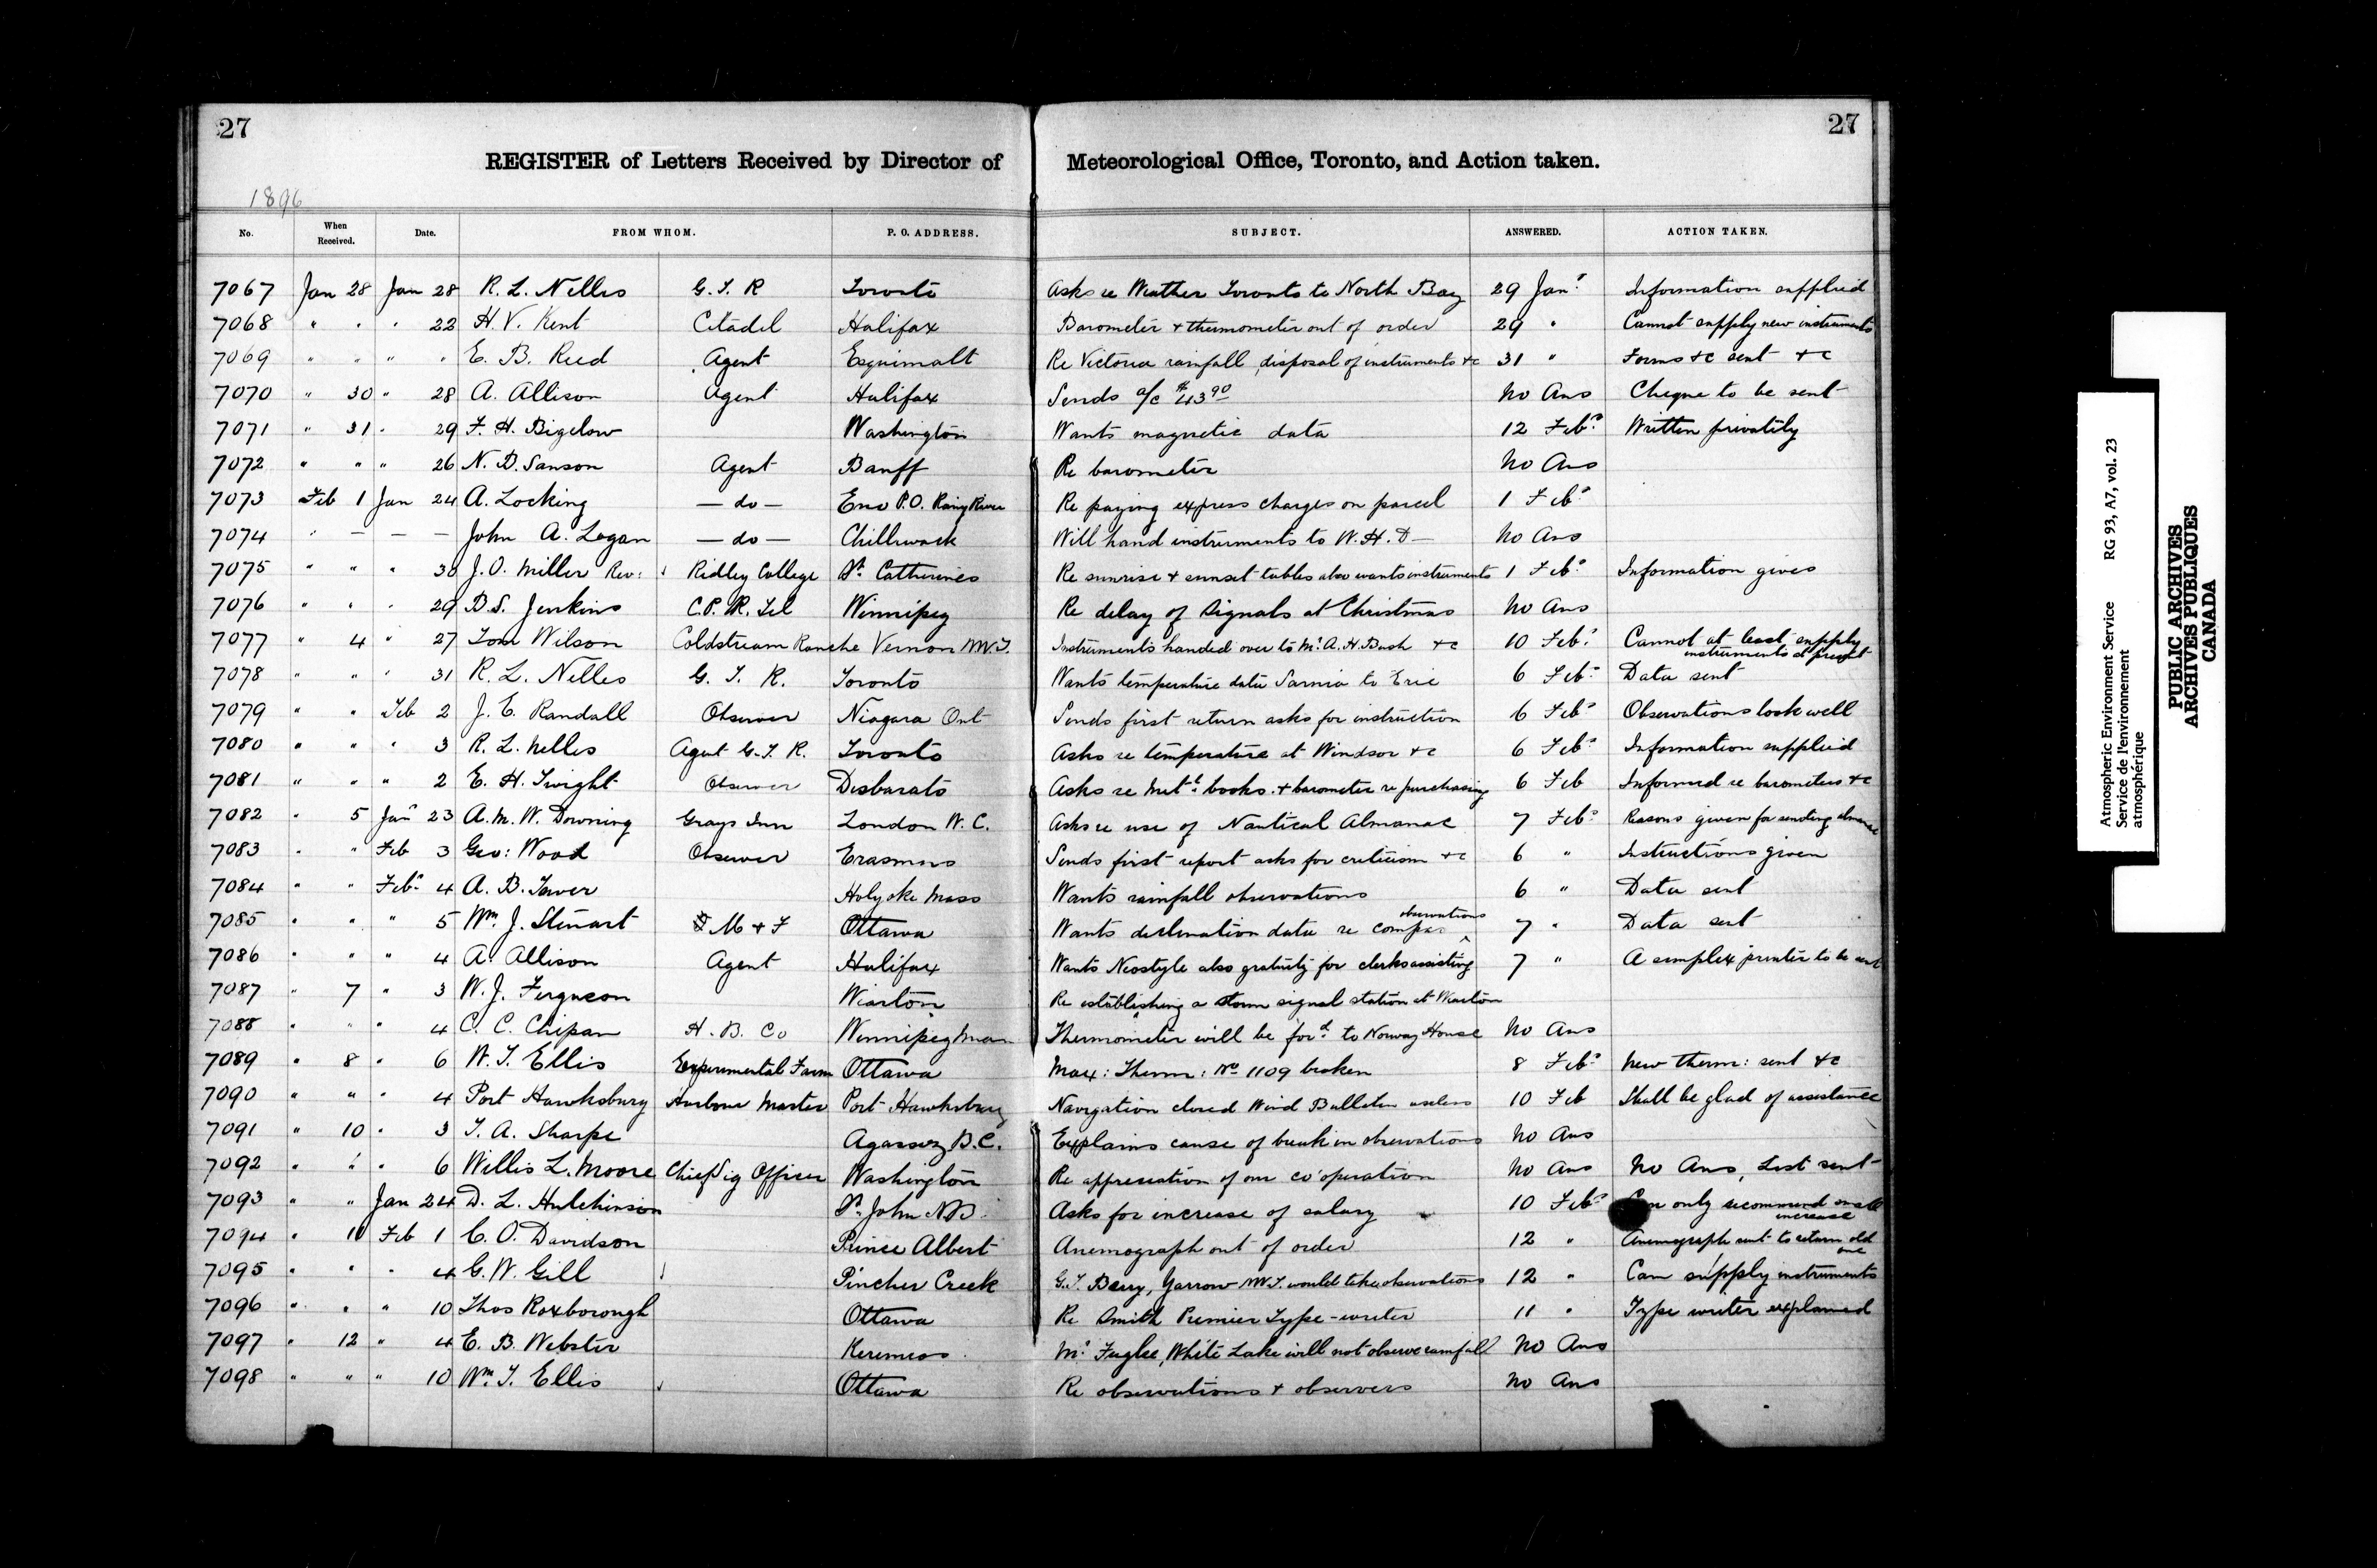 27
27
REGISTER of Letters Received by Director of Meteorological Office, Toronto, and Action taken.
1896
No. When Received. Date. FROM WHOM. P. O. ADDRESS. SUBJECT. ANSWERED. ACTION TAKEN.
7067 Jan 28 Jan 28 R. L. Nelles G. T. R Toronto Asks re Weather Toronto to North Bay 29 Jany Information supplied
7068 " " " 22 H. V. Kent Citadel Halifax Barometer + thermometer out of order 29 " Cannot supply new instruments
7069 " " " " E. B. Reed Agent Esquimalt Re Victoria rainfall, disposal of instruments +c 31 " Forms +c sent +c
7070 " 30 " 28 A. Allison Agent Halifax Sends a/c $43.90 No Ans Cheque to be sent
7071 " 31 " 29 F. H. Bigelow Washington Wants magnetic data 12 Feby Written privatily
7072 " " " 26 N. B. Sanson Agent Banff Re barometer No Ans
7073 Feb 1 Jan 24 A. Locking — do — Eno P.O. Rainy River Re paying express charges on parcel 1 Feby
7074 " — — — John A. Logan — do — Chilliwack Will hand instruments to W. H. D — No Ans
7075 " " " 30 J. O. Miller Rev: Ridley College St. Catherines Re sunrise + sunset tables also wants instruments 1 Feby Information given
7076 " " " 29 B. S. Jenkins C.P.R. Tel Winnipeg Re delay of Signals at Christmas No Ans
7077 " 4 " 27 Tom Wilson Coldstream Ranche Vernon NW.T. Instruments handed over to Mr. A. H. Bush +c 10 Feby Cannot at least supply instruments at present
7078 " " " 31 R. L. Nelles G. T. R. Toronto Wants temperature data Sarnia to Erie 6 Feby Data sent
7079 " " Feb 2 J. E. Randall Observer Niagara Ont Sends first return asks for instruction 6 Feby Observations look well
7080 " " " 3 R. L. Nelles Agent G. T. R. Toronto Asks re temperature at Windsor +c 6 Feby Information supplied
7081 " " " 2 E. H. Twight Observer Desbarats Asks re Metl. books + barometer re purchasing 6 Feb Informed re barometers +c
7082 " 5 Jany 23 A. M. W. Downing Grays Inn London W. C. Asks re use of Nautical Almanac 7 Feby Reasons given for sending almanac
7083 " " Feb 3 Geo: Wood Observer Erasmus Sends first report asks for criticism +c 6 " Instructions given
7084 " " Feby 4 A. B. Tower Holyoke Mass Wants rainfall observations 6 " Data sent
7085 " " " 5 Wm. J. Stewart M + F Ottawa Wants declination data re compas observations 7 " Data sent
7086 " " " 4 A. Allison Agent Halifax Wants Neostyle also gratuity for clerks assisting 7 " A simplex printer to be sent
7087 " 7 " 3 W. J. Ferguson Wiarton Re establishing a storm signal station at Wiarton
7088 " " " 4 C. C. Chipan H. B. Co Winnipeg Man Thermometer will be ford. to Norway House No Ans
7089 " 8 " 6 W. T. Ellis Experimental Farm Ottawa Max: Therm: No 1109 broken 8 Feby New therm: sent +c
7090 " " " 4 Port Hawksbury Harbour Master Port Hawksbury Navigation closed Wind Bulletin useless 10 Feb Shall be glad of assistance
7091 " 10 " 3 T. A. Sharpe Agassiz B.C. Explains cause of break in observations No Ans
7092 " " " 6 Willis L. Moore Chief Sig Officer Washington Re appreciation of our co'operation No Ans No Ans, List sent
7093 " " Jan 24 D. L. Hutchinson St. John N.B. Asks for increase of salary 10 Feby Can only recommend small increase
7094 " 10 Feb 1 C. O. Davidson Prince Albert Anemograph out of order 12 " Anemograph sent to return old one
7095 " " " 4 G. W. Gill Pincher Creek G. T. Barry, Yarrow NW.T. would take observations 12 " Can supply instruments
7096 " " " 10 Thos Roxborough Ottawa Re Smith Premier Type-writer 11 " Type writer explained
7097 " 12 " 4 E. B. Webster Keremeos Mr. White Lake will not observe rainfall No Ans
7098 " " " 10 Wm. T. Ellis Ottawa Re observations + observers No Ans
Atmospheric Environment Service RG 93, A7, vol. 23
Service de l'environnement
atmosphérique
PUBLIC ARCHIVES
ARCHIVES PUBLIQUES
CANADA